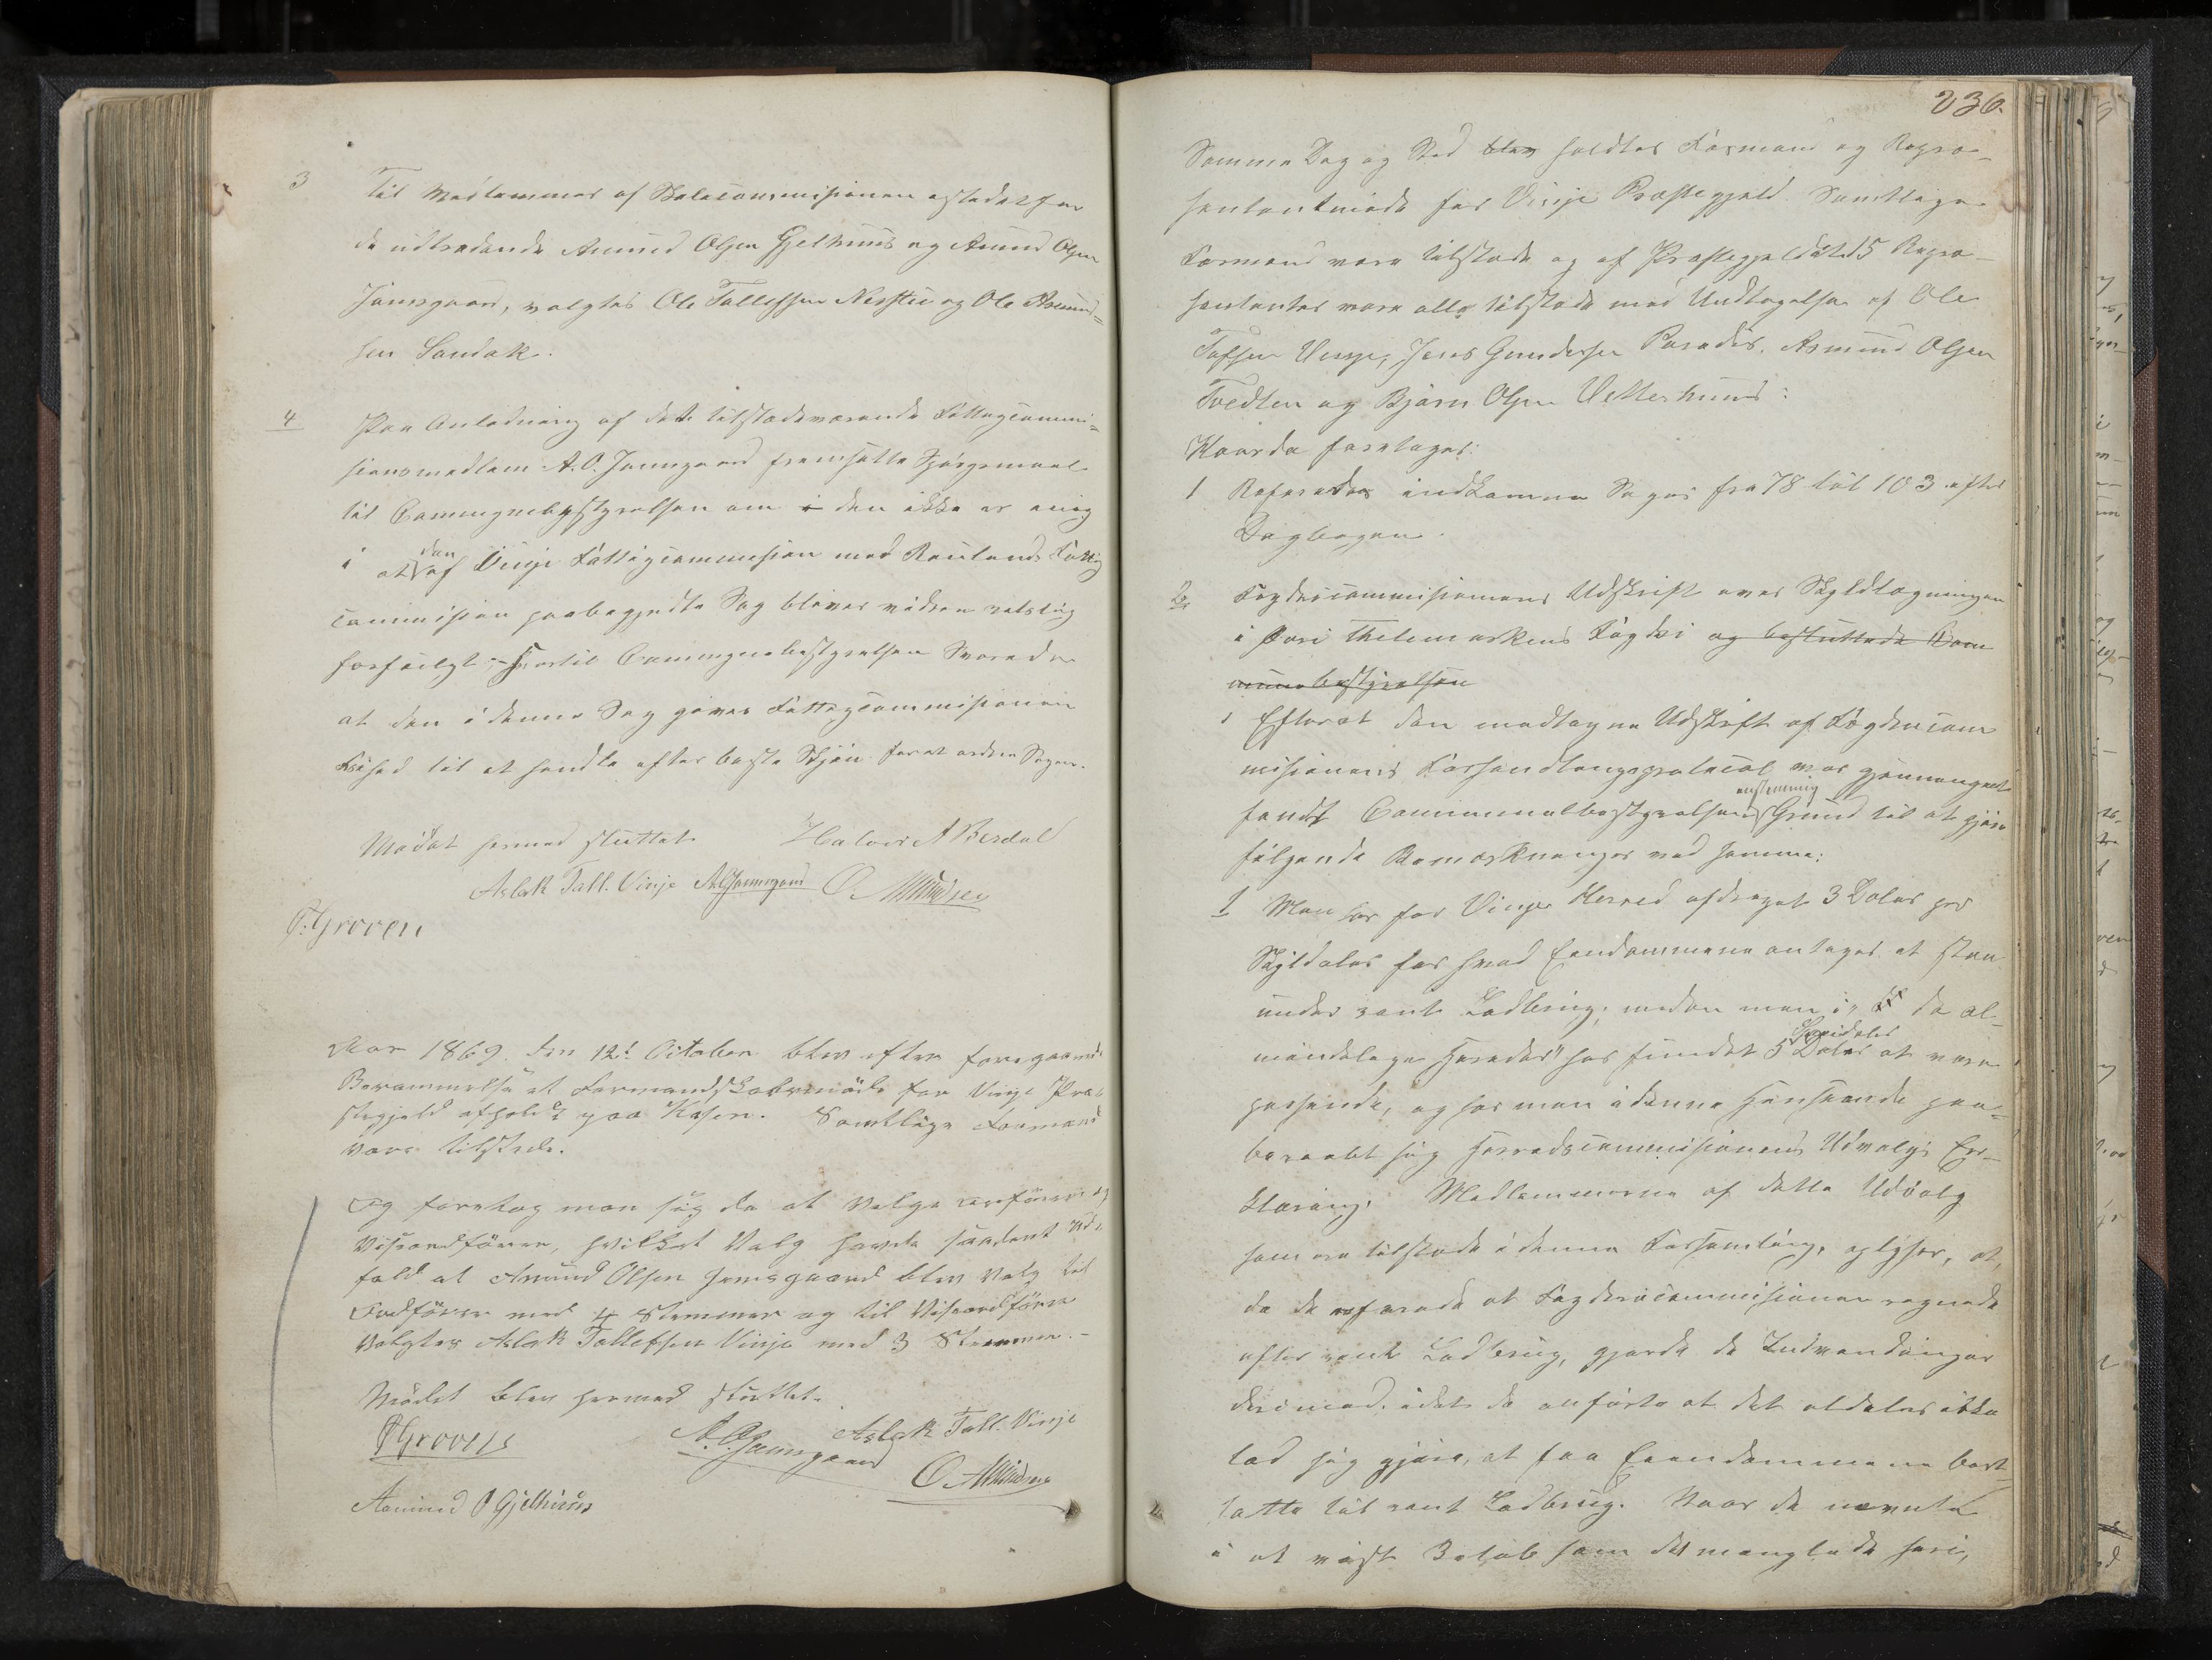 3 Til Medlemmer af Skolecommisionen istedetfor
de udtredende Amund Olsen Gjelhuus og Amund Olsen
Jamsgaard, valgtes Ole Tallefsen Nesstu og Ole Asmund-
sen Sandok.
4 Paa Anledning af det tilstedeværende Fattigcommi-
sionsmedlem A. O. Jamsgaard fremsatte Spørgsmaal
til Communebestyrelsen om i den ikke er enig
i at den af Vinje Fattigcommision mod Raulands Fattig
commision paabegyndte Sag bliver videre retslig
forfulgt; hvortil Communebestyrelsen Svarede
at den i denne Sag giver Fattigcommisionen
Frihed til at handle efter bedste Skjøn for at ordne Sagen.
Mødet hermed sluttet. Halvor A Berdal
Aslak Tall. Vinje AOJamsgaard O. AMundsen
T. Groven
Aar 1869 den 12te October blev efter foregaaende
Berammelse et Formandskabsmøde for Vinje Præ-
stegjeld afholdt paa Kaasen. Samtlige Formænd
vare tilstede.
Og foretog man sig da at vælge Ordfører og
Viseordfører, hvilket Valg havde saadant Ud-
fald at Amund Olsen Jamsgaard blev valg til
Ordfører med 4 Stemmer og til Viseordfører
valgtes Aslak Tallefsen Vinje med 3 Stemmer.-
Mødet blev hermed sluttet.
TGroven A.O.Jamsgaard Aslak Tall. Vinje
O. AMundsen
Aamund O Gjelhuus
236.
Samme Dag og Sted blev holdtes Formand og Repræ-
sentantmøde for Vinje Præstegjeld. Samtlige
Formænd vare tilstede og af Præstegjeldets 15 Repræ-
sentanter vare alle tilstede med Undtagelse af Ole
Tofsen Vinje, Jens Gundersen Paradis, Asmund Olsen
Tvedten og Bjørn Olsen Vetterhuus:
Hvorda foretoges:
1 Refereredes indkomne Sager fra 78 til 103 efter
Dagbogen.
2. Fogdericommisionens Udskrift over Skyldlægningen
i Øvri Thelemarkens Fogderi og besluttede Com
munebestyrelsen
Efterat den modtagne Udskrift af Fogdericom
misionens Forhandlingsprotocol var gjennemgaaet
fandt Communalbestyrelsen enstemmig Grund til at gjøre
følgende Bemærkninger ved samme:
1 Man har for Vinje Herred afdraget 3 Daler pr
Skyldaler for hvad Eiendommene antages at staa
under vant Ladbrug, medens man i de al-
mindelige Hereder" har fundet 5 Specidaler Daler at være
passende, og har man i denne Henseende paa-
beraabt sig Herredscommisionens Udvalgs Er-
klæring. Medlemmerne af dette Udvalg
som ere tilstede i denne Forsamling, oplyser, at,
da de erfarede at Fogdericommisionen regnede
efter vant Ladbrug, gjorde de Indvendinger
derimod, idet de anførte at det aldeles ikke
lod sig gjøre, at faa Eiendommene bort
satte til vant Ladbrug. Naar de nævnte
et vist Beløb som det manglede heri,